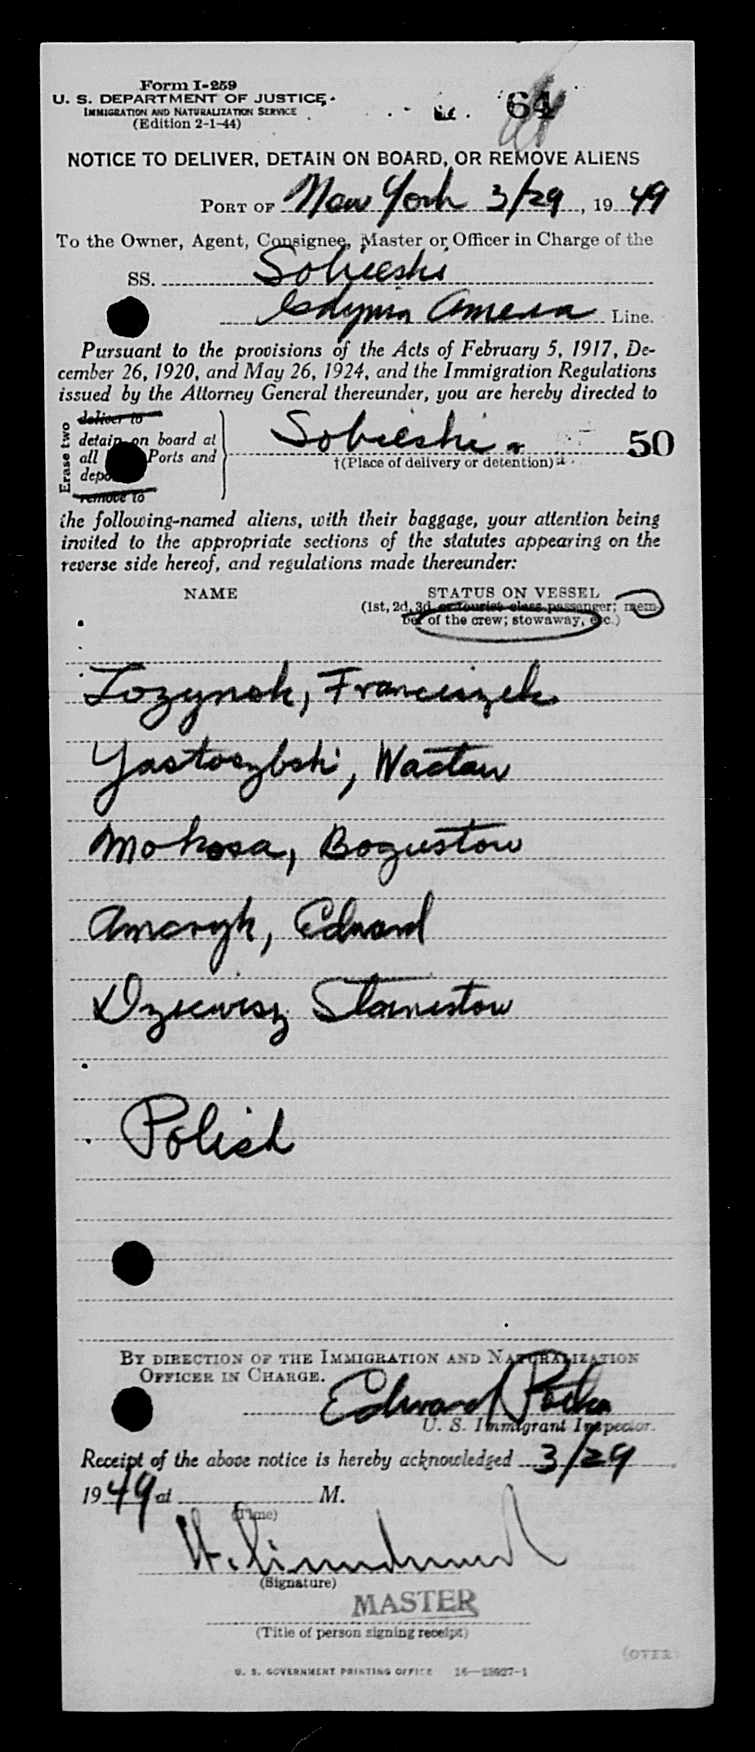 Form I-259
U. S. DEPARTMENT OF JUSTICE
IMMIGRATION AND NATURALIZATION SERVICE
(Edition 2-1-44)
64
NOTICE TO DELIVER, DETAIN ON BOARD, OR REMOVE ALIENS
PORT OF New York 3/29, 1949
To the Owner, Agent, Consignee, Master or Officer in Charge of the
SS. Sobieski
Gdynia America Line.
Pursuant to the provisions of the Acts of February 5, 1917, De-
cember 26, 1920, and May 26, 1924, and the Immigration Regulations
issued by the Attorney General thereunder, you are hereby directed to
Erase two
deliver to
detain on board at
all Ports and
remove to
Sobieski 50
†(Place of delivery or detention)
the following-named aliens, with their baggage, your attention being
invited to the appropriate sections of the statutes appearing on the
reverse side hereof, and regulations made thereunder:
NAME STATUS ON VESSEL
(1st, 2d, 3d, or tourist class passenger; mem-
ber of the crew; stowaway, etc.)
Lozynsk, Franciszek
Yastoszbski, Wactaw
Mokosa, Bogustow
Amcrayk, Edward
Dzicwisz Stanistow
Polish
BY DIRECTION OF THE IMMIGRATION AND NATURALIZATION
OFFICER IN CHARGE.
Edward
U. S. Immigrant Inspector.
Receipt of the above notice is hereby acknowledged 3/29
1949 at M.
(Time)
(Signature)
MASTER
(Title of person signing receipt)
(OVER)
U. S. GOVERNMENT PRINTING OFFICE 16—13927-1